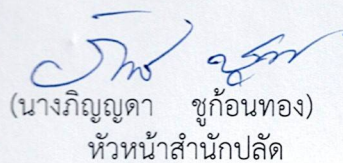 (นางภิญญดา ชูก้อนทอง)
หัวหน้าสำนักปลัด